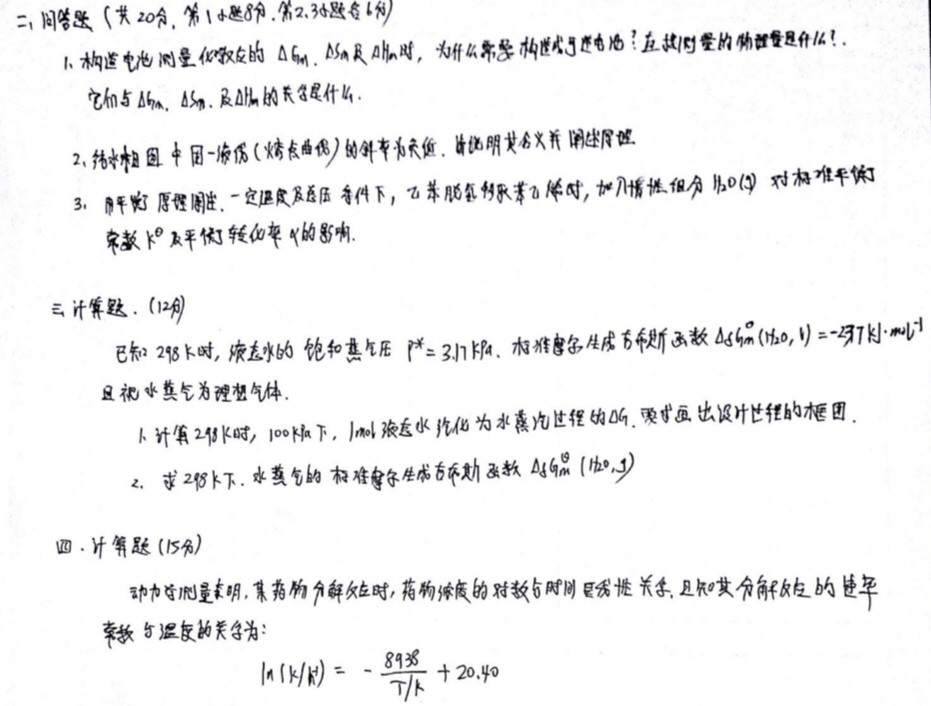 二、问答题（共20分，第1小题8分，第2.3小题各6分）
1. 构造电池测量化学反应的 ΔGm、ΔSm及ΔHm时，为什么常要构造成可逆电池？直接测量的物理量是什么？.
它们与ΔGm、ΔSm、及ΔHm的关系是什么.
2. 纯水相图中固-液线（熔点曲线）的斜率为负值、请说明其含义并阐述原理
3. 用平衡原理阐述、一定温度及总压条件下，乙苯脱氢制取苯乙烯时，加入惰性组分H₂O(g) 对标准平衡
常数 K^θ 及平衡转化率α的影响.
三、计算题.（12分）
已知298K时，液态水的饱和蒸气压 P*=3.17kPa、标准摩尔生成吉布斯函数 ΔfG^θm(H₂O, l) =-237 kJ·mol⁻¹
且视水蒸气为理想气体.
1. 计算298K时，100kPa下，1mol液态水汽化为水蒸汽过程的ΔG、要求画出设计过程的框图.
2. 求298K下、水蒸气的标准摩尔生成吉布斯函数 ΔfG^θm(H₂O,g)
四.计算题（15分）
动力学测量表明，某药物分解反应时，药物浓度的对数与时间呈线性关系，且知其分解反应的速率
常数与温度的关系为：
ln(k/h⁻¹) = - 8938/(T/K) + 20.40